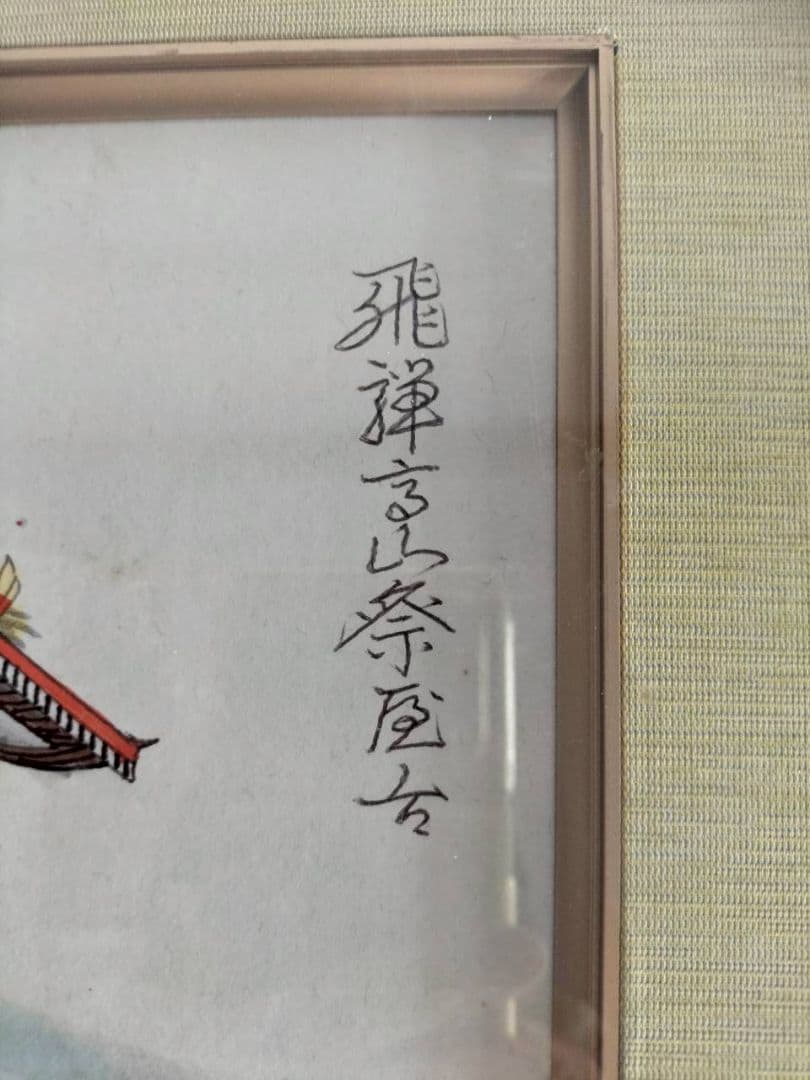 飛騨高山祭屋台